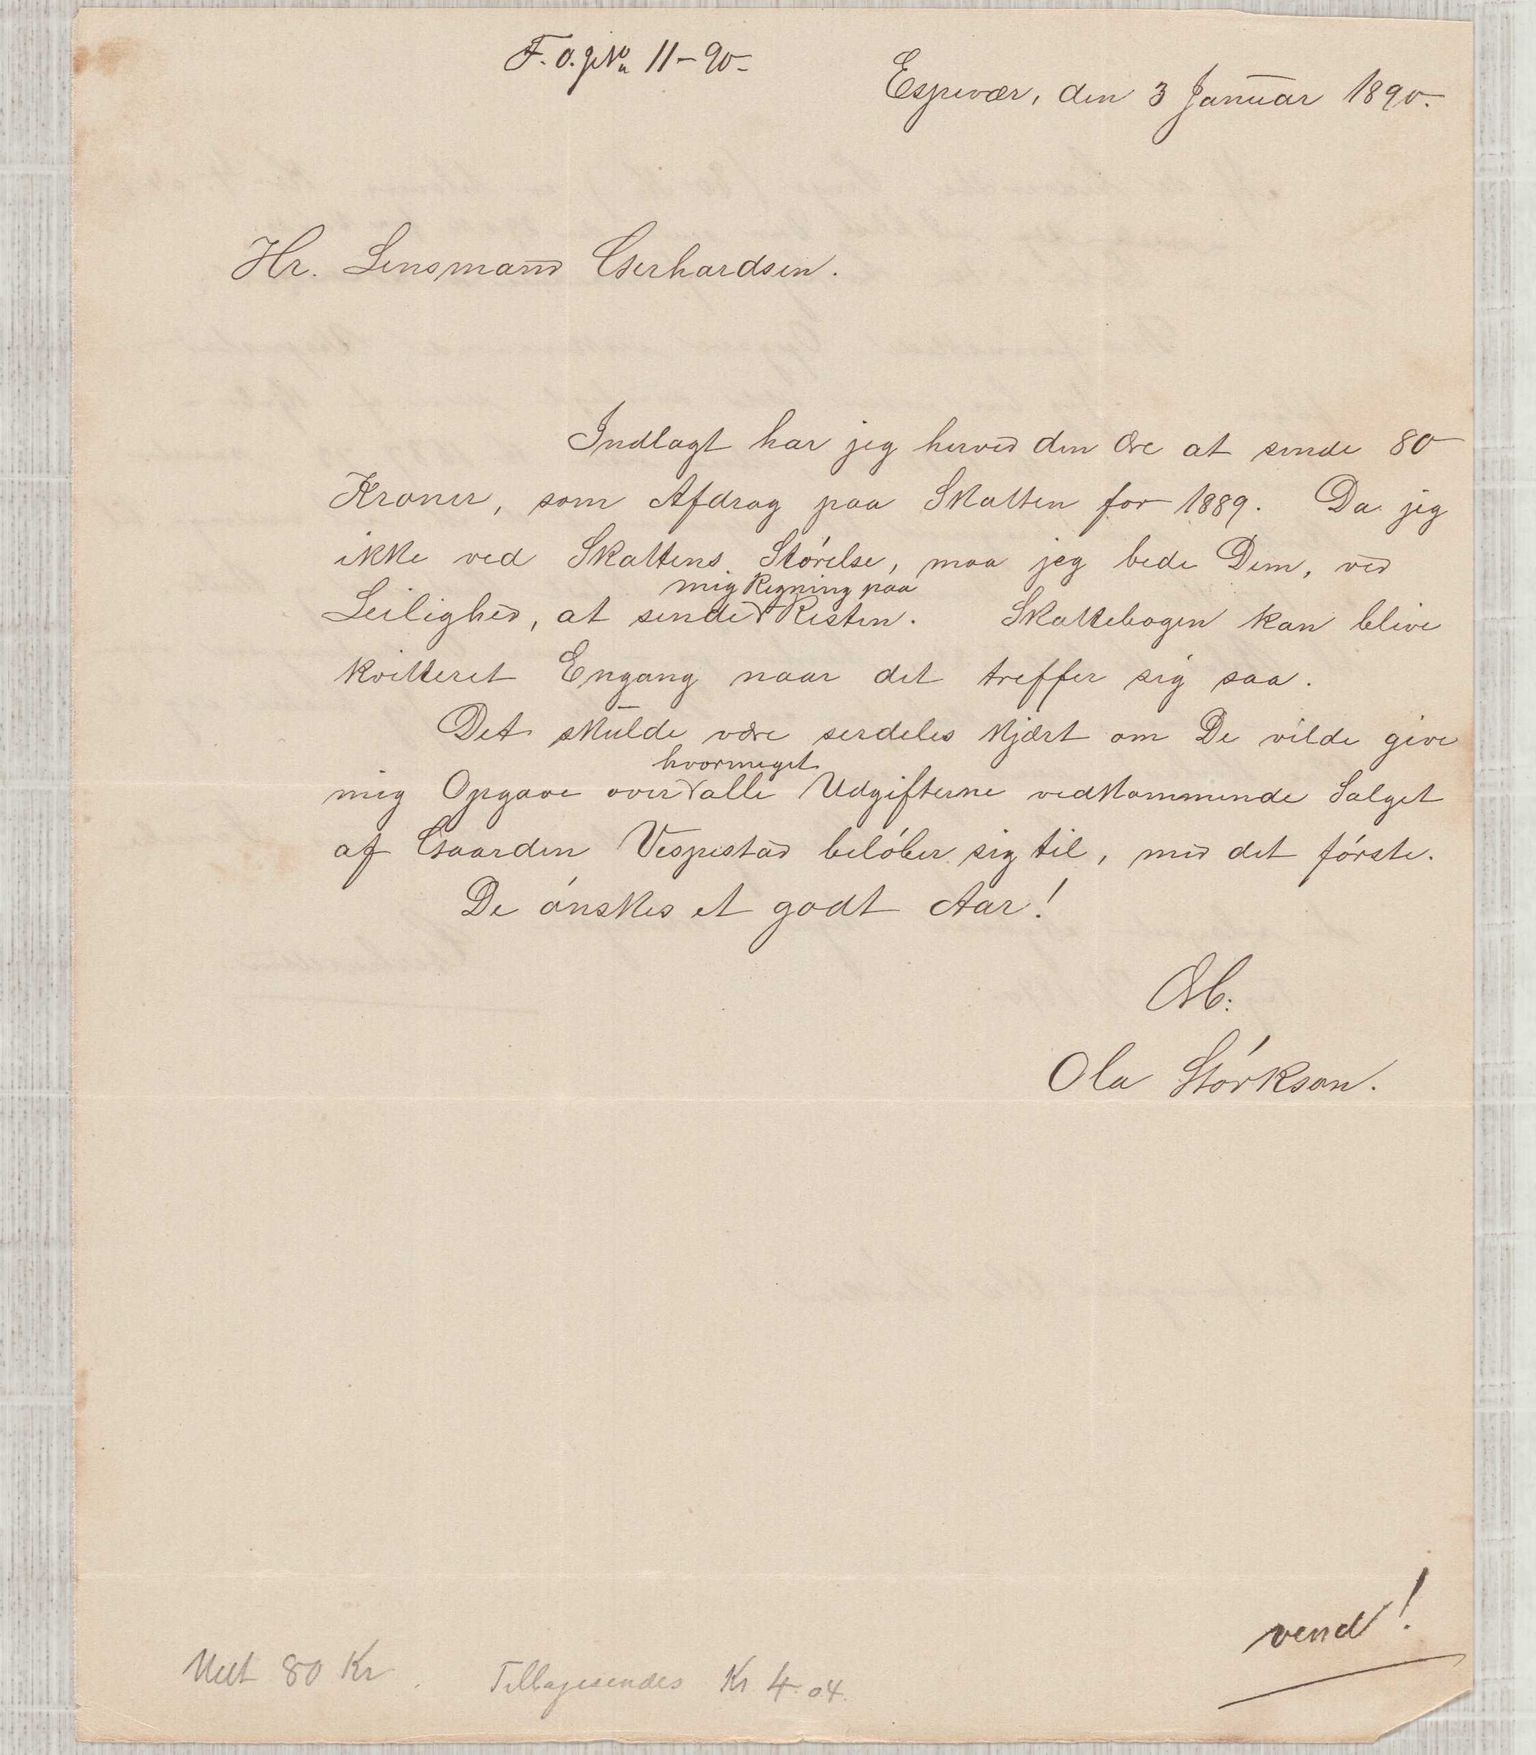 F. o. g. No 11-90-
Espevær, den 3 Januar 1890.
Hr. Lensmand Gerhardsen.
Indlagt har jeg herved den Ære at sende 80
Kroner, som Afdrag paa Skatten for 1889. Da jeg
ikke ved Skattens Störelse, maa jeg bede Dem, ved
mig Regning paa
Leilighed, at sende Resten. Skattebogen kan blive
kvitteret Engang naar det treffer sig saa.
Det skulde være serdeles kjært om De vilde give
hvormeget
mig Opgave over alle Udgifterne vedkommende Salget
af Gaarden Vespestad belöber sig til, med det förste.
De önskes et godt Aar!
Ærb.
Ola Störkson.
vend!
Mdt 80 Kr. Tilbagesendes Kr 4.04.